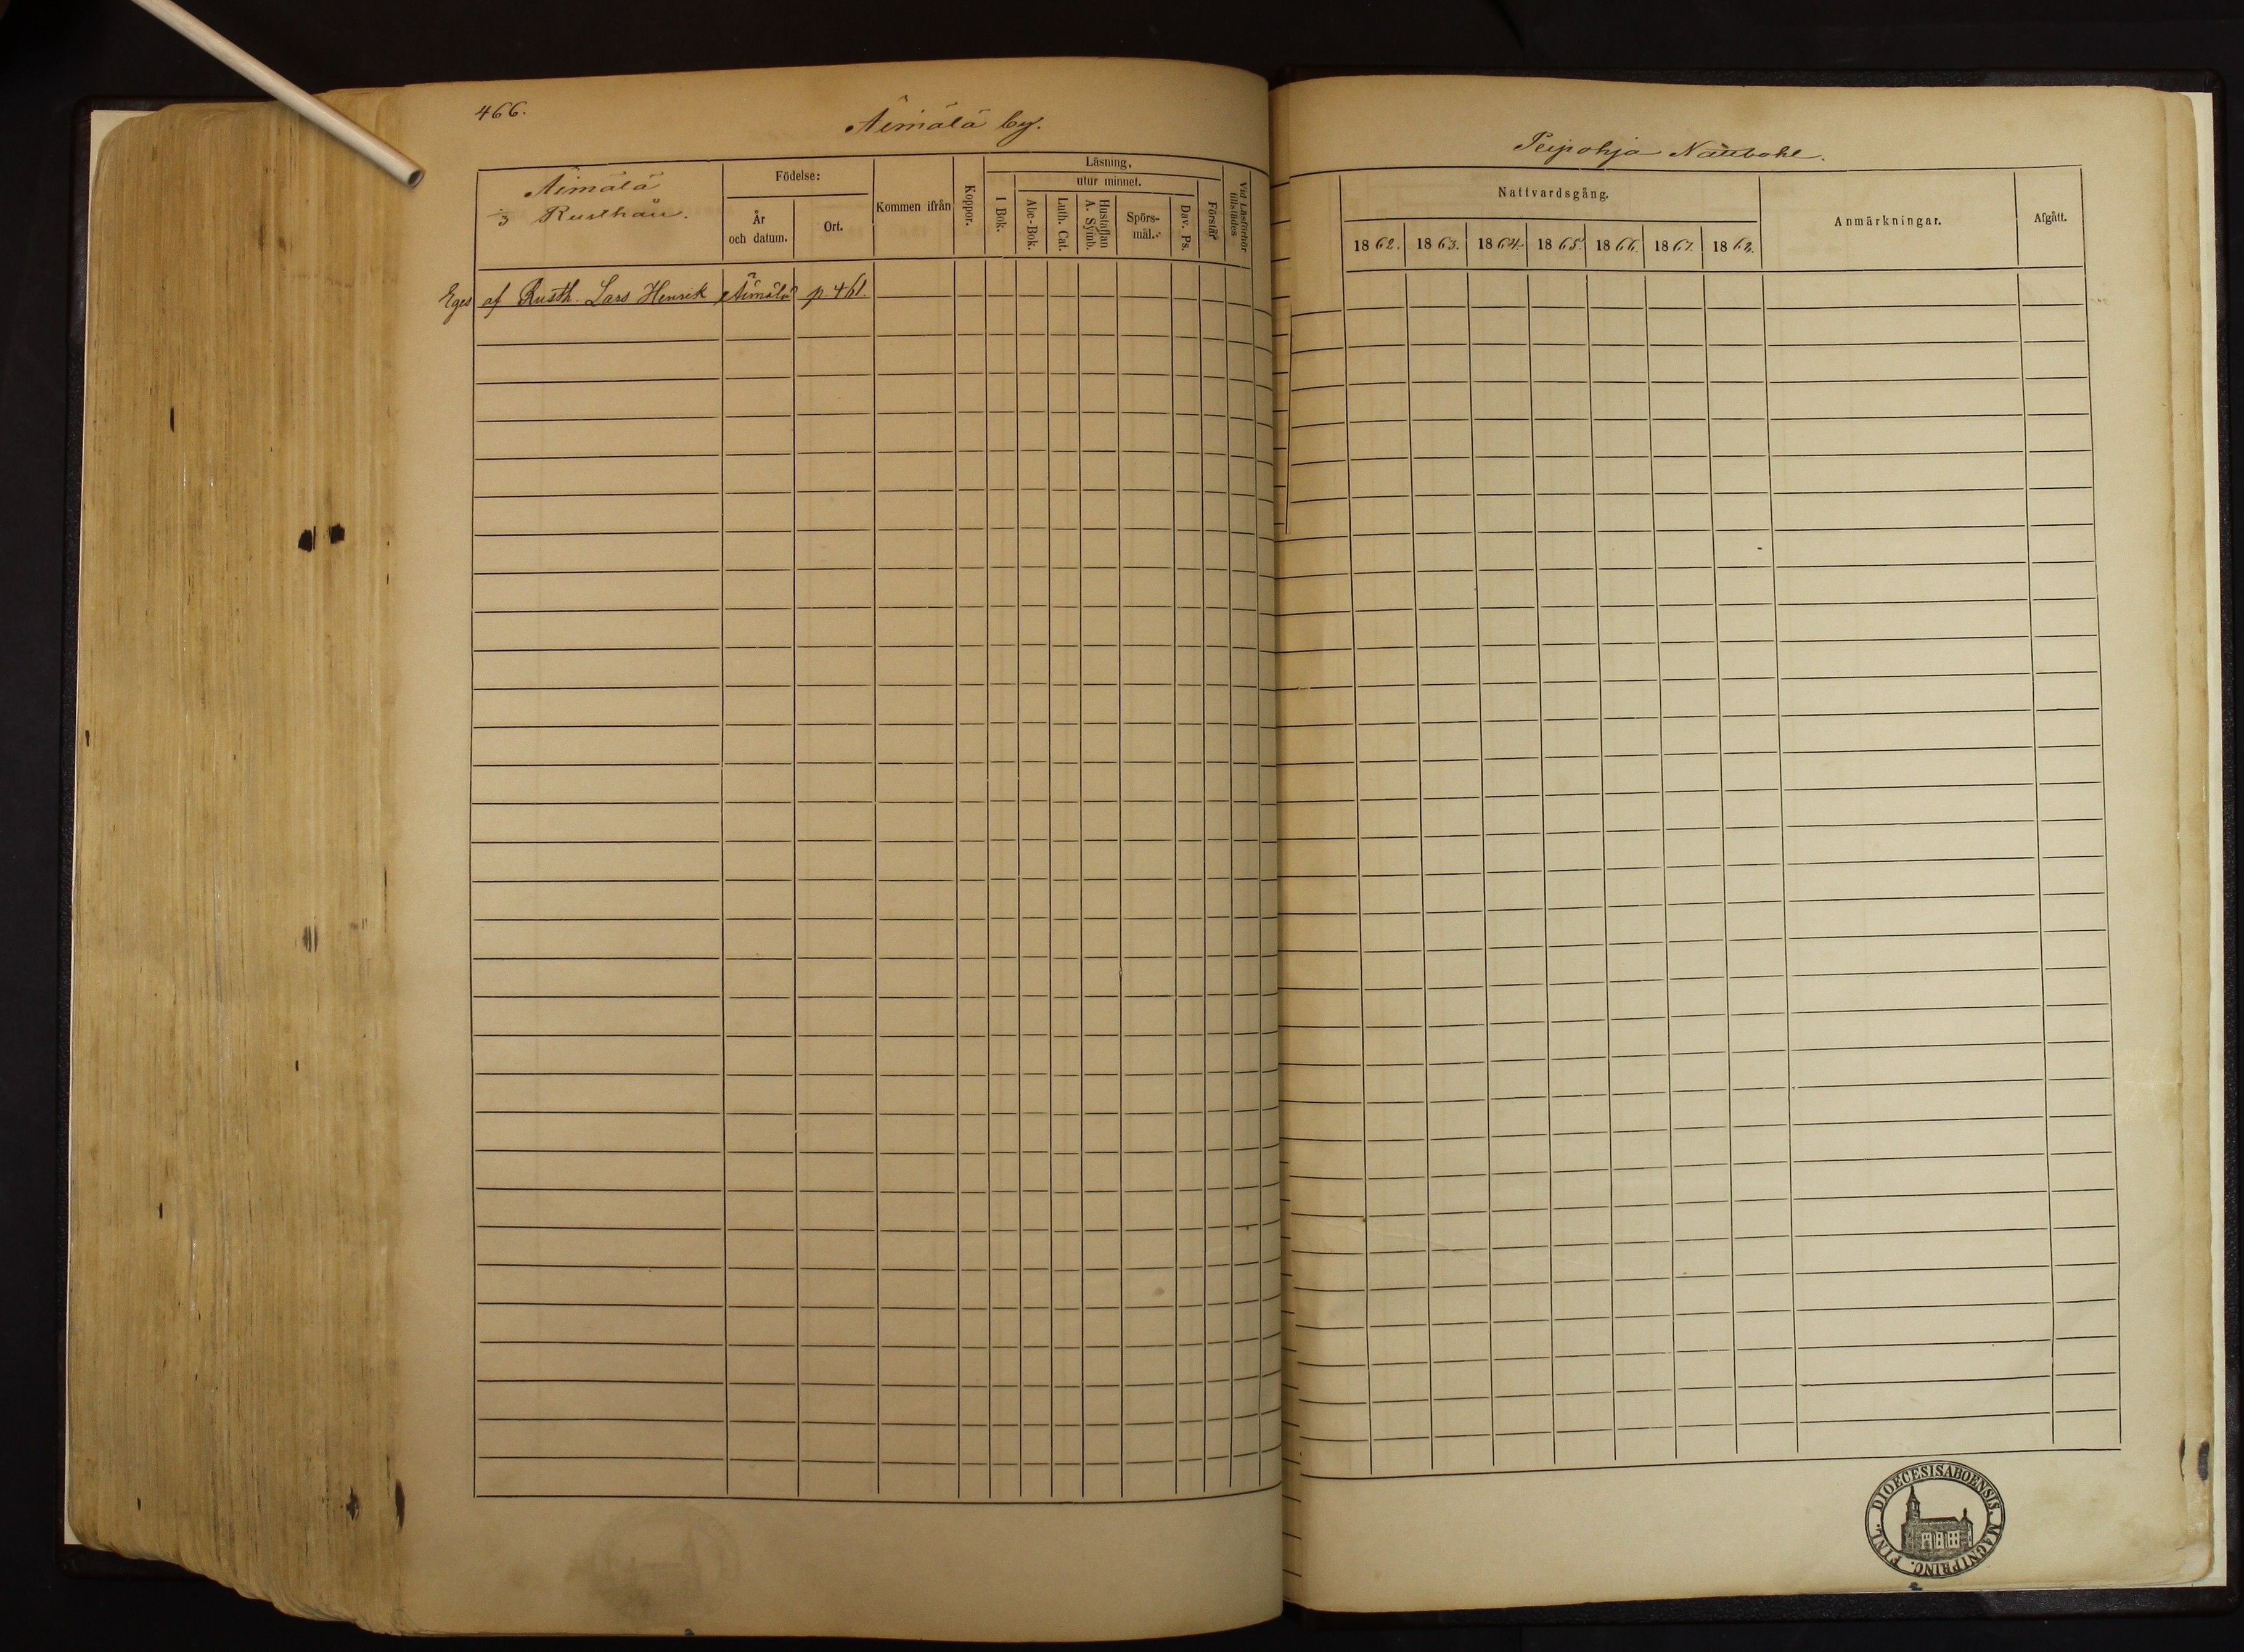 466.
Äimälä by.
Äimälä
3 Rusthåll.
Födelse:
År
och datum.
Ort.
Kommen ifrån
Koppor.
Läsning,
utur minnet.
I Bok.
Abc-Bok.
Luth. Cat.
Hustaflan
A. Symb.
Spörs-
mål.
Dav. Ps.
Förstår
Vid Läsförhör
tillstädes
Eges af Rusth. Lars Henrik Äimälä p. 461.
Peipohja
Nattvardsgång.
1862. 1863. 1864. 1865. 1866. 1867. 1868.
Anmärkningar.
Afgått.
DIOECESIS ABOENSIS. MAGNI PRINC. FINL.